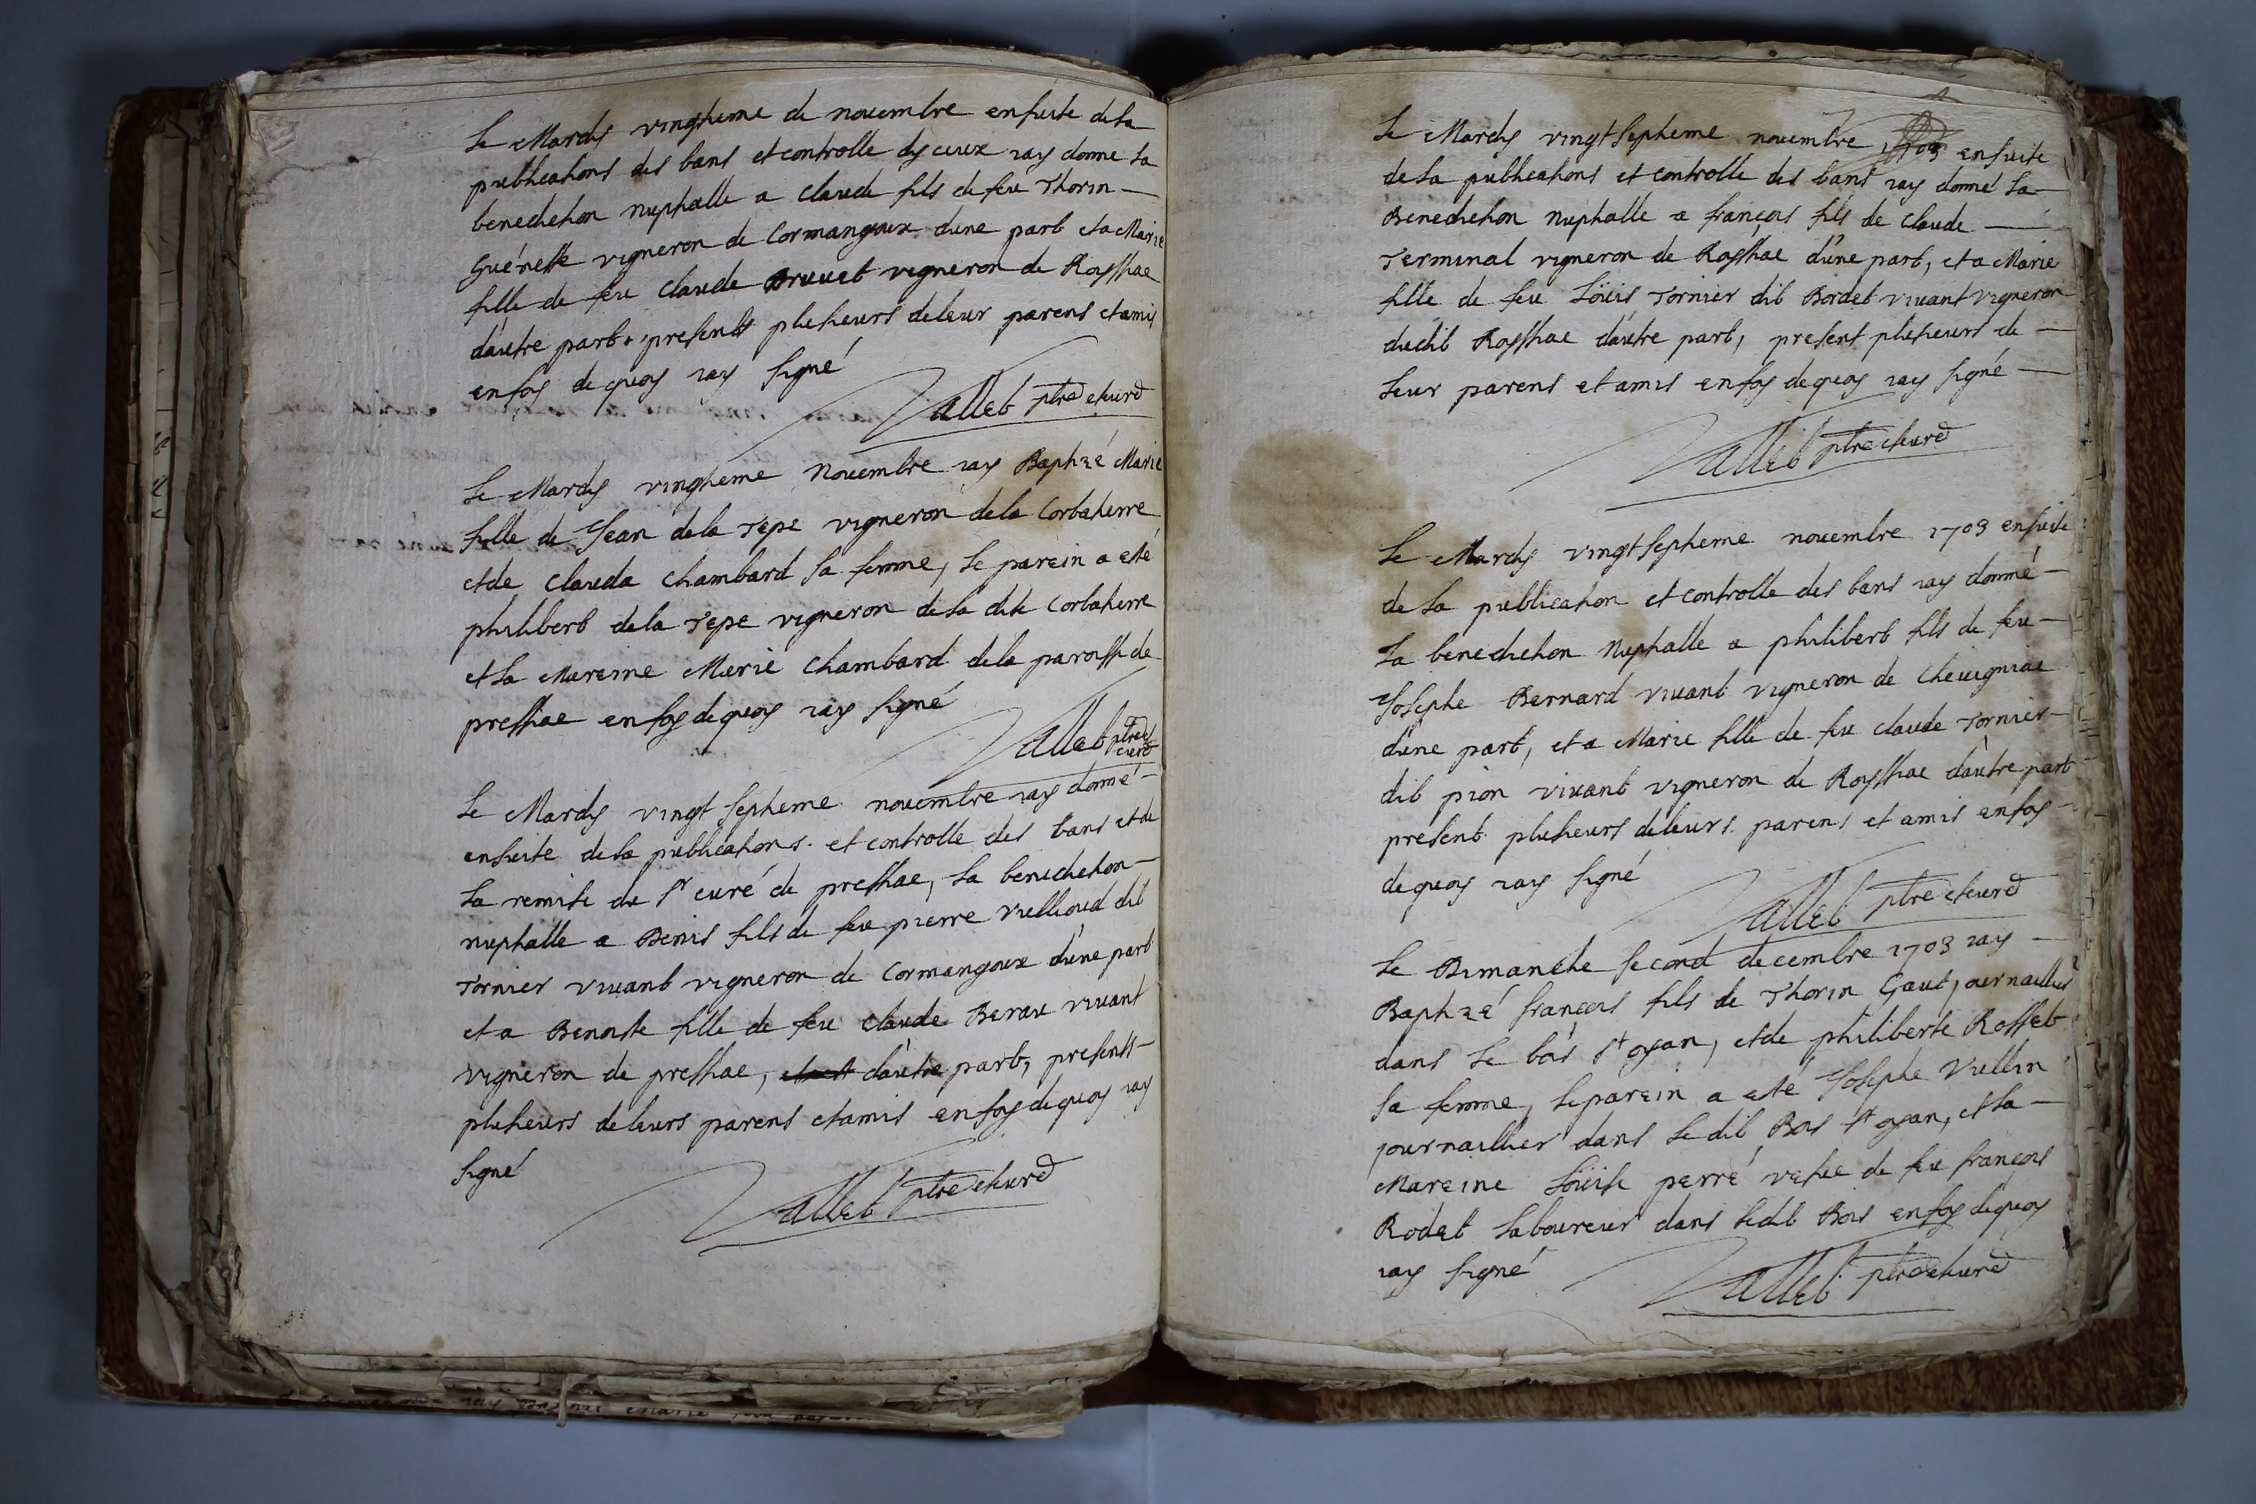 Le Mardy vingtieme de novembre ensuite de la
publications des bans et controlle dyceux iay donne la
benediction nuptialle a Claude fils de feu Thorin
Guénette vigneron de Cormangoux dune part et a Marie
fille de feu Claude Bruuet vigneron de Roissiae
dautre part, presents plusieurs de leur parens et amis
en foy de quoy iay signé
Vallet ptre et curé
Le Mardy vingtieme Novembre iay Baptizé Marie
fille de Jean de la Tepe vigneron de la Corbatiere
et de Clauda Chambard sa femme, le parein a esté
philibert de la Tepe vigneron de la dite Corbatiere
et la Mareine Marie Chambard de la paroisse de
pressiae en foy de quoy iay signé
Vallet ptre et curé
Le Mardy vingt septieme novembre iay donné
ensuite de la publications et controlle des bans et de
la remise du sr curé de pressiae, la benediction
nuptialle a Denis fils de feu pierre Vullioud dit
Tornier vivant vigneron de Cormangoux dune part
et a Benoite fille de feu Claude Berau vivant
vigneron de pressiae, dautre part, presents
plusieurs de leurs parens et amis en foy de quoy iay
signé
Vallet ptre et curé
Le Mardy vingt septieme novembre 1703 ensuite
de la publications et controlle des bans iay donné la
Benediction Nuptialle a françois fils de Claude
Terminal vigneron de Roissiae dune part, et a Marie
fille de feu Loüis Tornier dit Bordet vivant vigneron
dudit Roissiae dautre part, present plusieurs de
leur parens et amis en foy de quoy iay signé
Vallet ptre et curé
Le Mardy vingt septieme novembre 1703 ensuite
de la publication et controlle des bans iay donné
La benediction Nuptialle a philibert fils de feu
Josephe Bernard vivant vigneron de Chevigniae
dune part, et a Marie fille de feu Claude Tornier
dit pion vivant vigneron de Roissiae dautre part
present plusieurs de leurs parens et amis en foy
de quoy iay signé
Vallet ptre et curé
Le Dimanche second decembre 1703 iay
Baptizé françois fils de Thorin Gaut journaillier
dans le bois st oyan, et de philiberte Rosset
sa femme, le parein a esté Josephe Vullin
journaillier dans le dit Bois st oyan, et la
Mareine Loüise perré vefue de feu françois
Rodet laboureur dans ledit Bois en foy de quoy
iay signé
Vallet ptre et curé